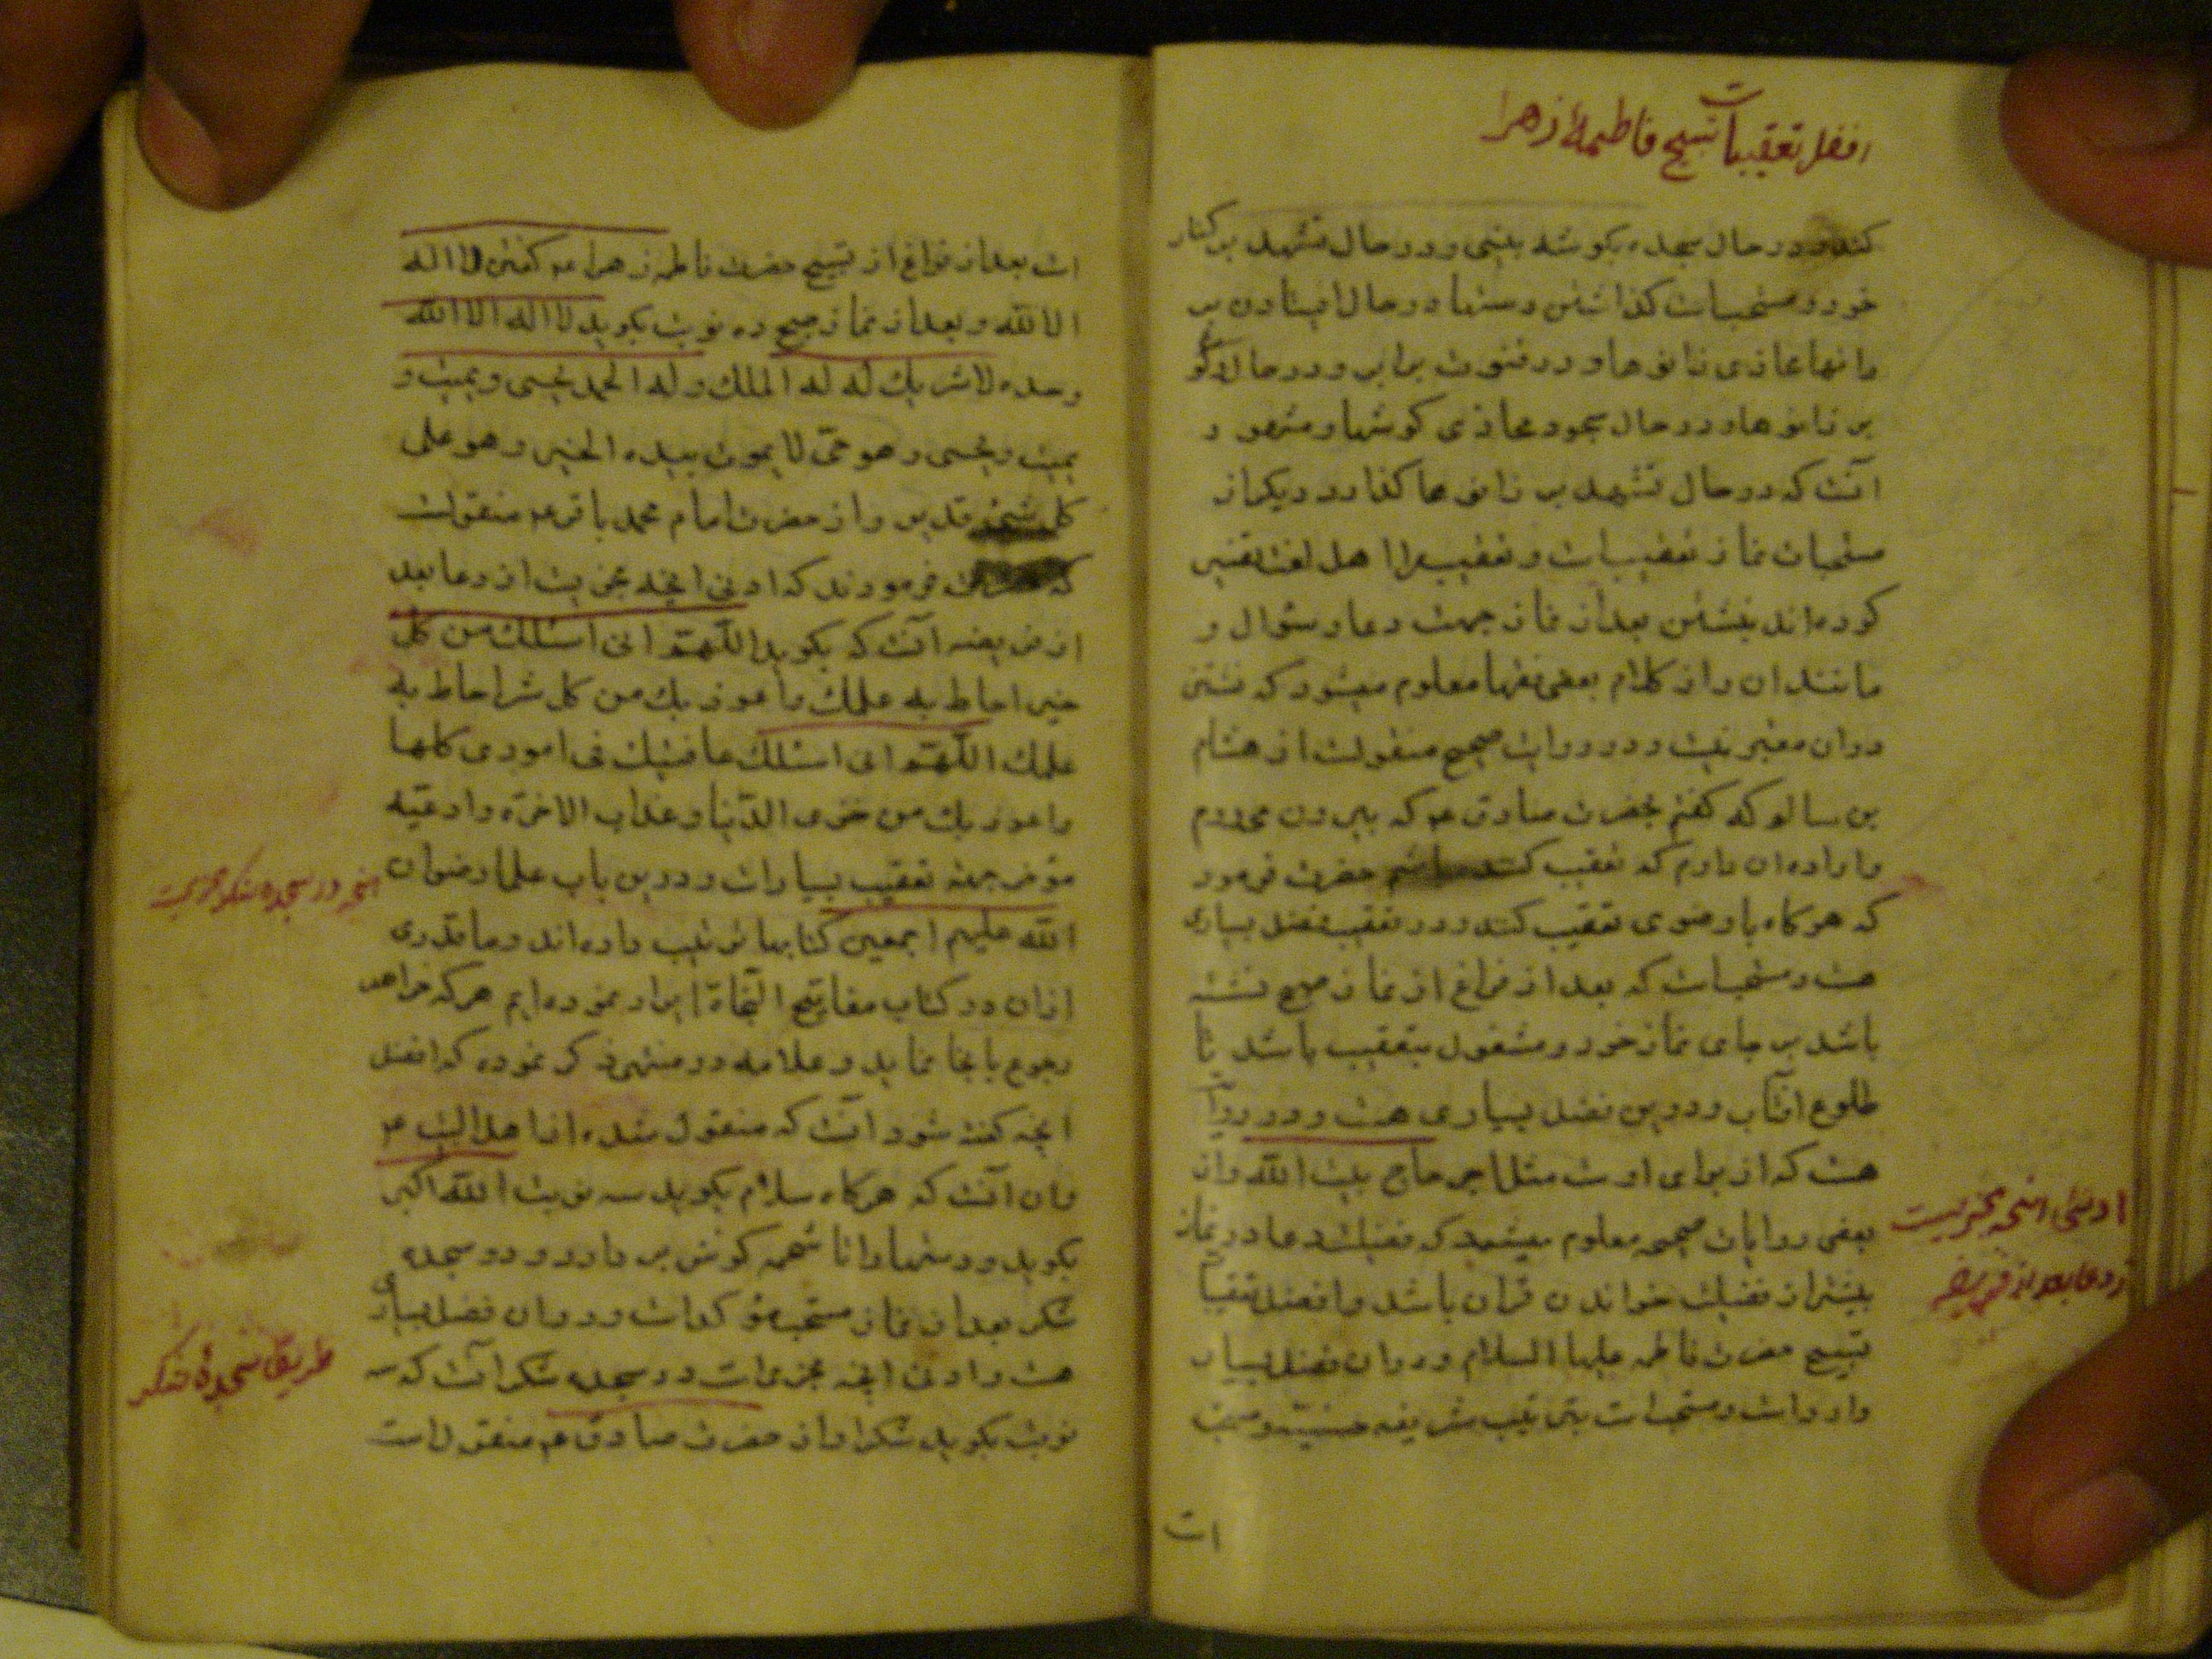 افضل تعقیبات تسبیح فاطمهٔ زهرا
کند و در حال سجده بکوشه بینی و در حال تشهد بر کنار
خود و مستحبات کذاشتن دستها در حال ایستادن بر
رانها محاذی زانوها و در قنوت برابر و در حال رکوع
بر زانوها و در حال سجود محاذی کوشها و مشهور
انست که در حال تشهد بر زانوها کذارد و دیکر از
مستحبات نماز تعقیبات و تعقیب را اهل لغت تفسیر
کرده‌اند بنشستن بعد از نماز جهت دعا و سؤال و
مانند ان و از کلام بعضی فقها معلوم میشود که نشستن
در ان معتبر نیست و در روایت صحیح منقولست از هشام
بن سالم که کفتم بحضرت صادق عم که بیرون میروم
و اراده ان دارم که تعقیب کننده باشم حضرت فرمود
که هرکاه با وضوی تعقیب کننده و در تعقیب فضل بسیاری
هست و مستحبات که بعد از فراغ از نماز صبح نشسته
باشد بر جای نماز خود و مشغول بتعقیب باشد تا
طلوع افتاب و درین فضل بسیاری هست و در روایت
هست که از برای اوست مثل اجر حاج بیت الله و از
بعضی روایات صحیحه معلوم میشود که فضیلت دعا در نماز
بیشتر از فضیلت خواندن قران باشد و افضل تعقیبات
تسبیح حضرت فاطمه علیها السلام و در ان فضل بسیار
وارد است و مستحبات بتربت شریفه حسینیه و سنت
ادنی انچه مجزیست
از دعا بعد از فریضه
ات
است بعد از فراغ از تسبیح حضرت فاطمه زهرا عم کفتن لا اله
الا الله و بعد از نماز صبح ده نوبت بکوید لا اله الا الله
وحده لا شریك له له الملك و له الحمد یحیی و یمیت و
یمیت و یحیی و هو حی لا یموت بیده الخیر و هو علی
کل شیء قدیر و از حضرت امام محمد باقر عم منقولست
که حضرت فرمودند که ادنی انچه مجزیست از دعا بعد
از فریضه انست که بکوید اللهم انی اسئلك من کل
خیر احاط به علمك و اعوذ بك من کل شر احاط به
علمك اللهم انی اسئلك عافیتك فی اموری کلها
و اعوذ بك من خزی الدنیا و عذاب الاخرة و ادعیه
جهة تعقیب بسیار است و درین باب علما رضوان
الله علیهم اجمعین کتابها ترتیب داده‌اند و ما قدری
از ان در کتاب مفاتیح النجاة ایراد نموده‌ایم هر که خواهد
رجوع بانجا نماید و علامه در منتهی ذکر نموده که افضل
انچه کفته شود انست که منقول شده از اهل البیت عم
و ان انست که هرکاه سلام بکوید سه نوبت الله اکبر
بکوید و دستها را تا شحمه کوش بر دارد و دو سجده
شکر بعد از نماز مستحب مؤکد است و در ان فضل بسیاری
هست و ادنی انچه مجزی است در سجده شکر انست که سه
نوبت بکوید شکرا و از حضرت صادق عم منقولست
انچه در سجده شکر مجزیست
طریق سجدهٔ شکر